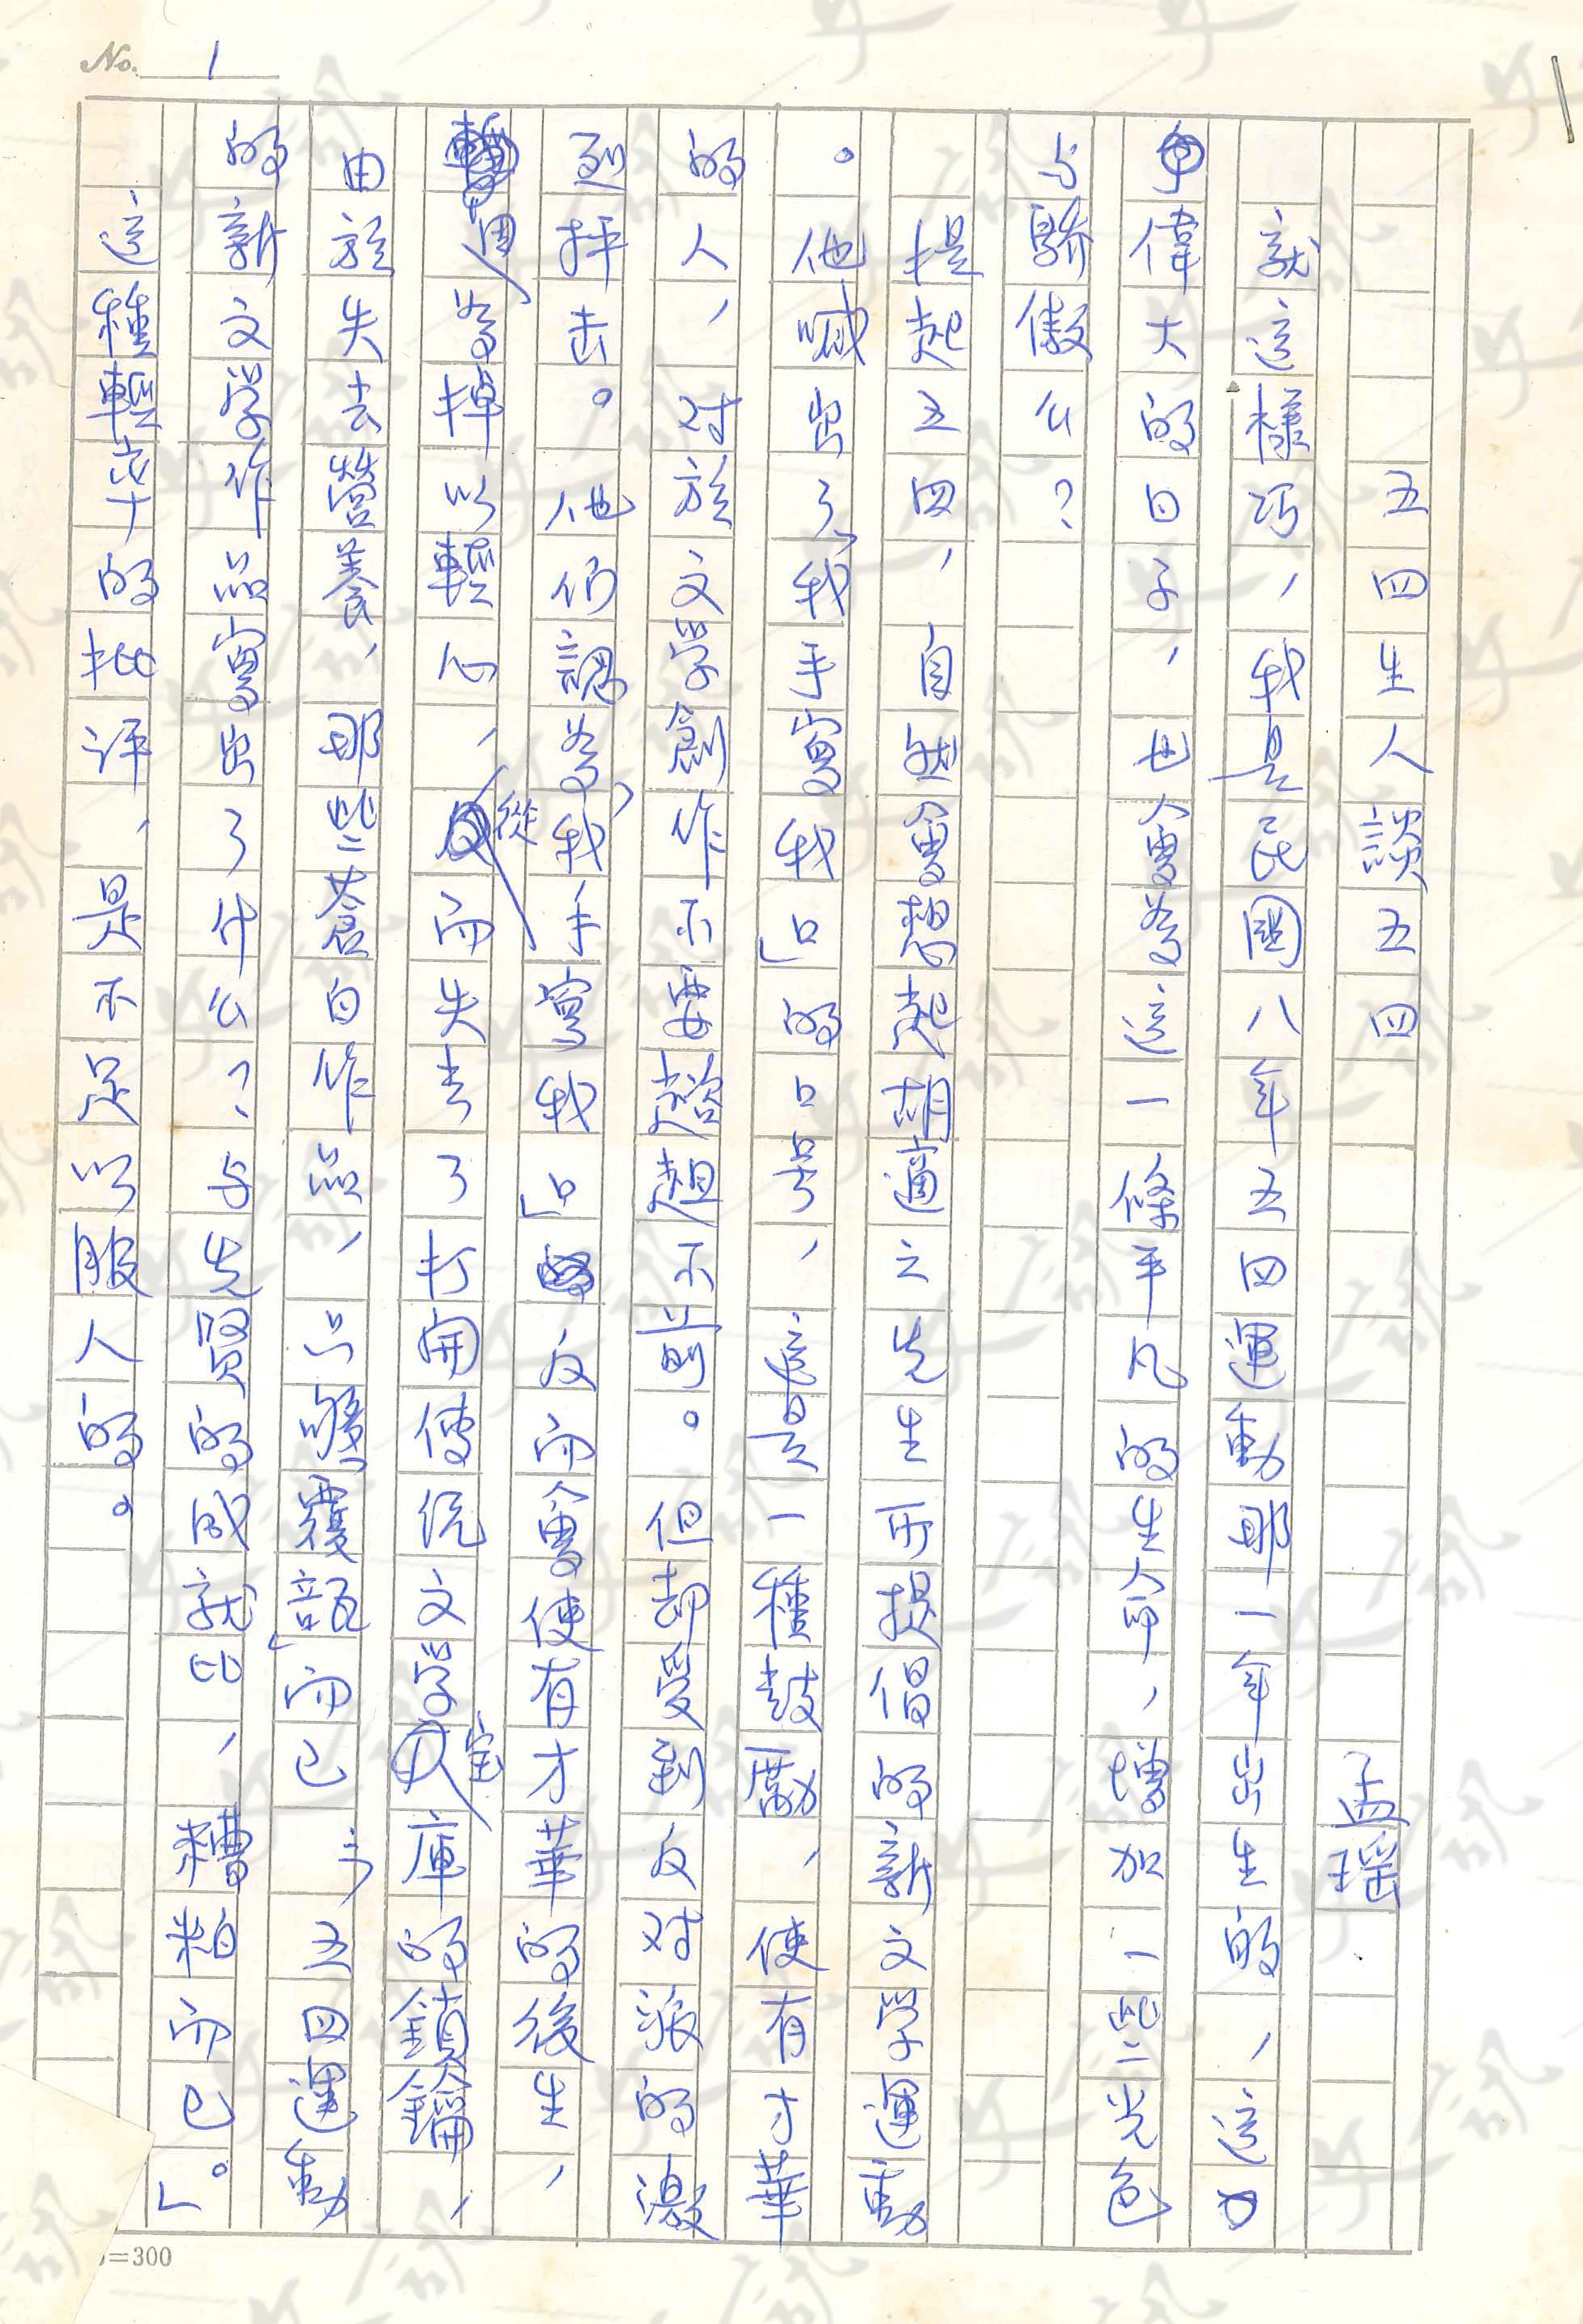 No. 1
五四生人談五四 孟瑤
就這樣巧,我是民國八年五四運動那一年出生的,這
偉大的日子,也會為這一個平凡的生命,增加一些光色
与驕傲么?
提起五四,自然會聯想起胡適之先生所提倡的新文學運動
。他喊出了「我手寫我口」的口號,這是一種鼓勵,使有才華
的人,对於文學創作不再 不前。但卻受到反对派的激
烈抨击。他們認為,「我手寫我口」反而會使有才華的後生,
因為掉以輕心,從而失去了打開傳統文學寶庫的鎖鑰,
由於失去營養,那些蒼白作品,只 「覆瓿而已」五四運動
的新文學作品寫出了什么?与先賢的成就比,「糟粕而已」。
這種輕率的批評,是不足以服人的。
=300